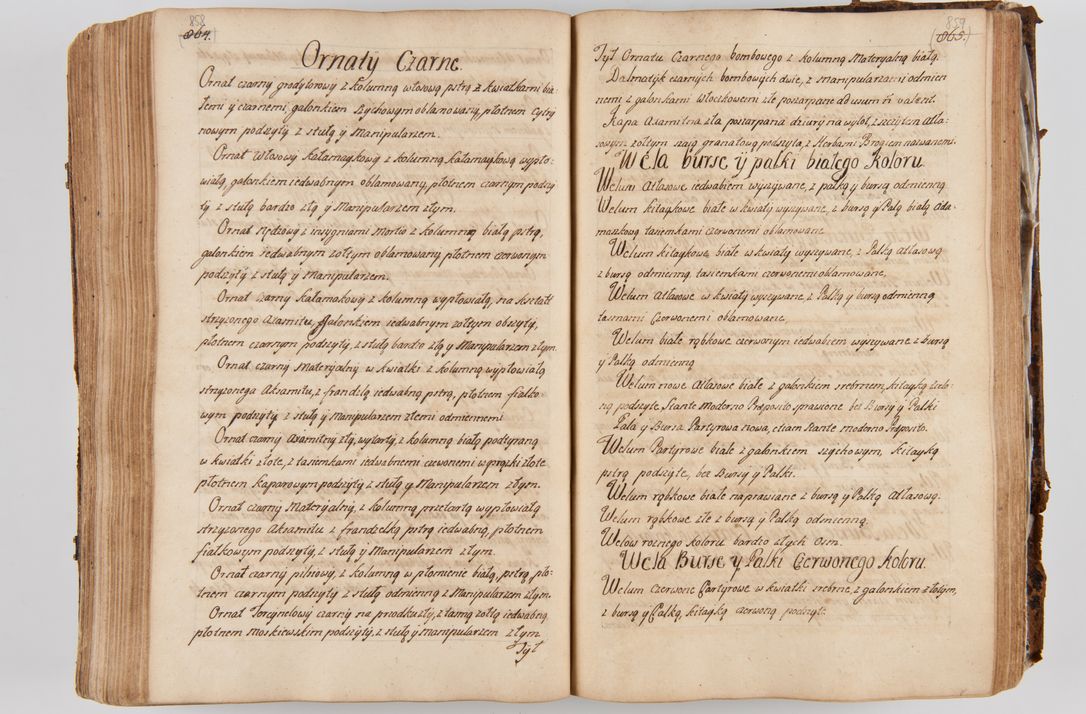 858
864.
Ornaty Czarne
Ornat czarny grodytorowy z kolumną włosową pstrą z kwiatkami bia
łemi y czarnemi, galonkiem szychowym oblamowany, płotnem Cytry
nowym podszyty z stułą y Manipularzem.
Ornat Włosowy kałamaykowy z kolumną kałamaykową wypło-
wiałą, galonkiem iedwabnym oblamowany, płotnem czarnym podszy
ty z stułą bardzo złą y Manipularzem złym.
Ornat rądzowy z insygniami Mortis z kolumnną białą pstrą,
galonkiem iedwabnym żołtym oblamowany, płotnem czerwonym
podszyty z stułą y Manipularzem.
Ornat czarny kałamakowy z kolumną wypłowiałą, na kształt
strzyżonego Axamitu, Galonkiem iedwabnym żołtym obszyty,
płotnem czarnym podszyty, z stułą bardzo złą y Manipularzem złym.
Ornat czarny Materyalny w kwiatki z kolumną wypłowiałą
strzyżonego Aksamitu, z frandzlą iedwabną pstrą, płotnem fiałko-
wym podszyty z stułą y Manipularzem złemi odmiennemi
Ornat czarny Axamitny zły, wytarty, z kolumną białą podszywaną
w kwiatki złote, z tasienkami iedwabnemi czerwonemi w prążki złote
płotnem kaparowym podszyty z stułą y Manipularzem złym.
Ornat czarny Materyalny, z kolumną przetartą wypłowiałą
strzyżonego Aksamitu z frandzelką pstrą iedwabną, płotnem
fiałkowym podszyty, z stułą y Manipularzem złym.
Ornat czarny pilsiowy, z kolumną w płomienie białą, pstrą, pło-
tnem czarnym podszyty z stułą odmienną z Manipularzem złym.
Ornat Torcynelowy czarny na przodku zły, z taśmą żołtą iedwabną
płotnem Moskiewskim podszyty, z stułą y Manipularzem złym.
Tył
859
865.
Tył Ornatu Czarnego bombowego z kolumną Materyalną białą.
Dalmatyk czarnych bombowych dwie, z manipularzami odmien
nemi z galonkami Włoczkowemi złe poszarpane ad usum ñ valent.
Kapa Axamitna zła poszarpana dziury na wylot, z szczytem Atła-
sowym żołtym szają granatową podszyta, z Herbami Brogiem nazwanemi.
Wela burse y palki białego koloru
Welum Atłasowe iedwabiem wyszywane, z palką y bursą odmienną
Welum kitaykowe białe w kwiaty wyszywane, z bursą y Palą białą ada-
maszkową tasienkami czerwonemi oblamowane
Welum kitaykowe białe w kwiaty wyszywane, z Palką atłasową
z bursą odmienną, tasienkami czerwonemi oblamowane,
Welum Atłasowe w kwiaty wyszywane z Palką y bursą odmienną
tasmami czerwonemi oblamowane,
Welum białe rąbkowe czerwonym iedwabiem wyszywane z bursą
y Palką odmienną
Welum nowe Atłasowe białe z galonkiem srebrnem, kitayką zielo-
ną podszyte. Stante Moderno Præposito sprawione bez Bursy y Palki
Pala y Bursa Partyrowa nowa, etiam Stante moderno Præposito.
Welum Partyrowe białe z galonkiem szychowym, kitayką
pstrą podszyte, bez Bursy y Palki.
Welum rąbkowe białe naprawiane z bursą y Palką Atłasową.
Welum rąbkowe złe z bursą y Palką odmienną.
Welow rożnego koloru bardzo złych osm.
Wela Burse y Palki Czerwonego koloru.
Welum czerwone Partyrowe w kwiatki srebrne, z galonkiem złotym,
z bursą y Palką, kitayką czerwoną podszyte.